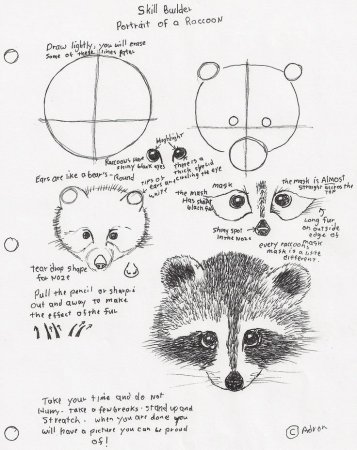 Skill Builder
Portrait of a Raccoon
Draw lightly, you will erase
some of these lines later
Highlight
Raccoons have
shiny black eyes
There is a
thick eyelid
circling the eye
Ears are like a bear's - Round
Tips of
ears are
white
mask
the mask is Almost
straight across the
top
the mask
Has
black fur
Shiny spot
in the Noze
Long fur
on outside
edge of
mask
every raccoon
mask is a little
different.
tear drop shape
for Noze
Pull the pencil or sharpi
out and away to make
the effect of the fur
Take your time and do Not
Hurry. Take a few breaks - stand up and
Streatch. when you are done you
will have a picture you can be proud
of!
© Adron